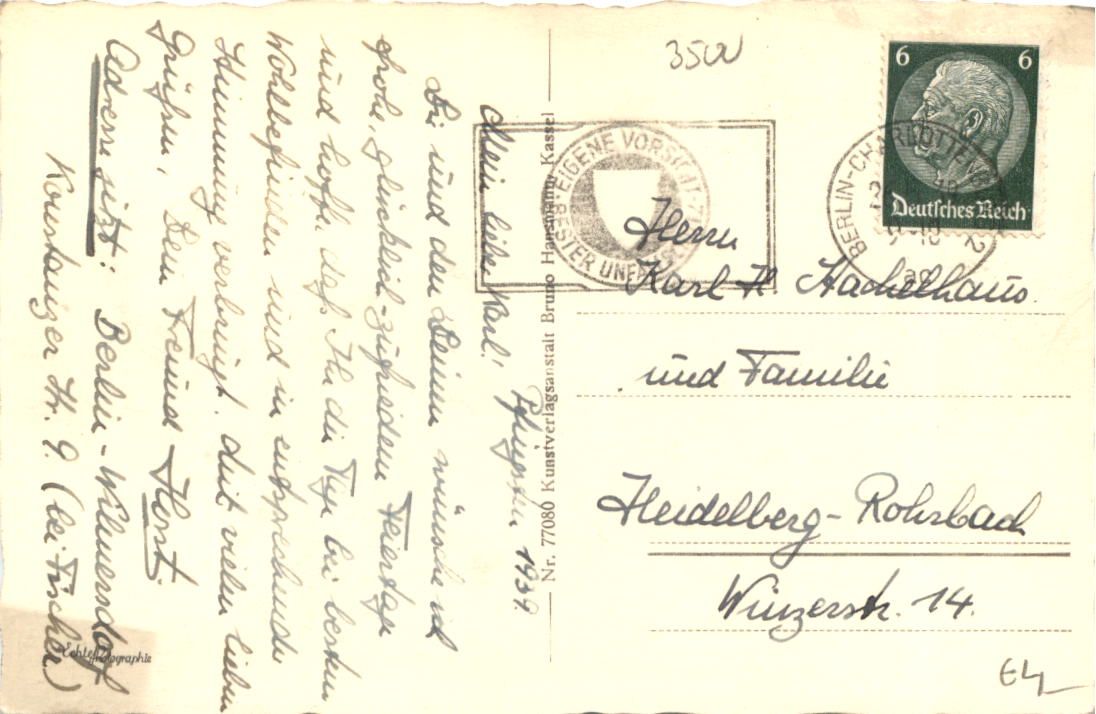 Mein lieber Karl! Pfingsten 1939.
Dir und den Deinen wünsche ich
frohe, glücklich-zufriedene Feiertage
und hoffe, daß Ihr die Tage bei bestem
Wohlbefinden und in entsprechender
Stimmung verbringt. Mit vielen lieben
Grüßen, Dein Freund Horst.
Adresse jetzt: Berlin-Wilmersdorf
Konstanzer Str. 9. (bei Fischer)
Echte Photographie
Nr. 77080 Kunstverlagsanstalt Bruno Hansmann, Kassel
3500
EIGENE VORSICHT
BESTER UNFALLSCHUTZ
BERLIN-CHARLOTTENBURG 2
6 6
Deutsches Reich
Herrn
Karl H. Hachelhaus
und Familie
Heidelberg-Rohrbach
Winzerstr. 14.